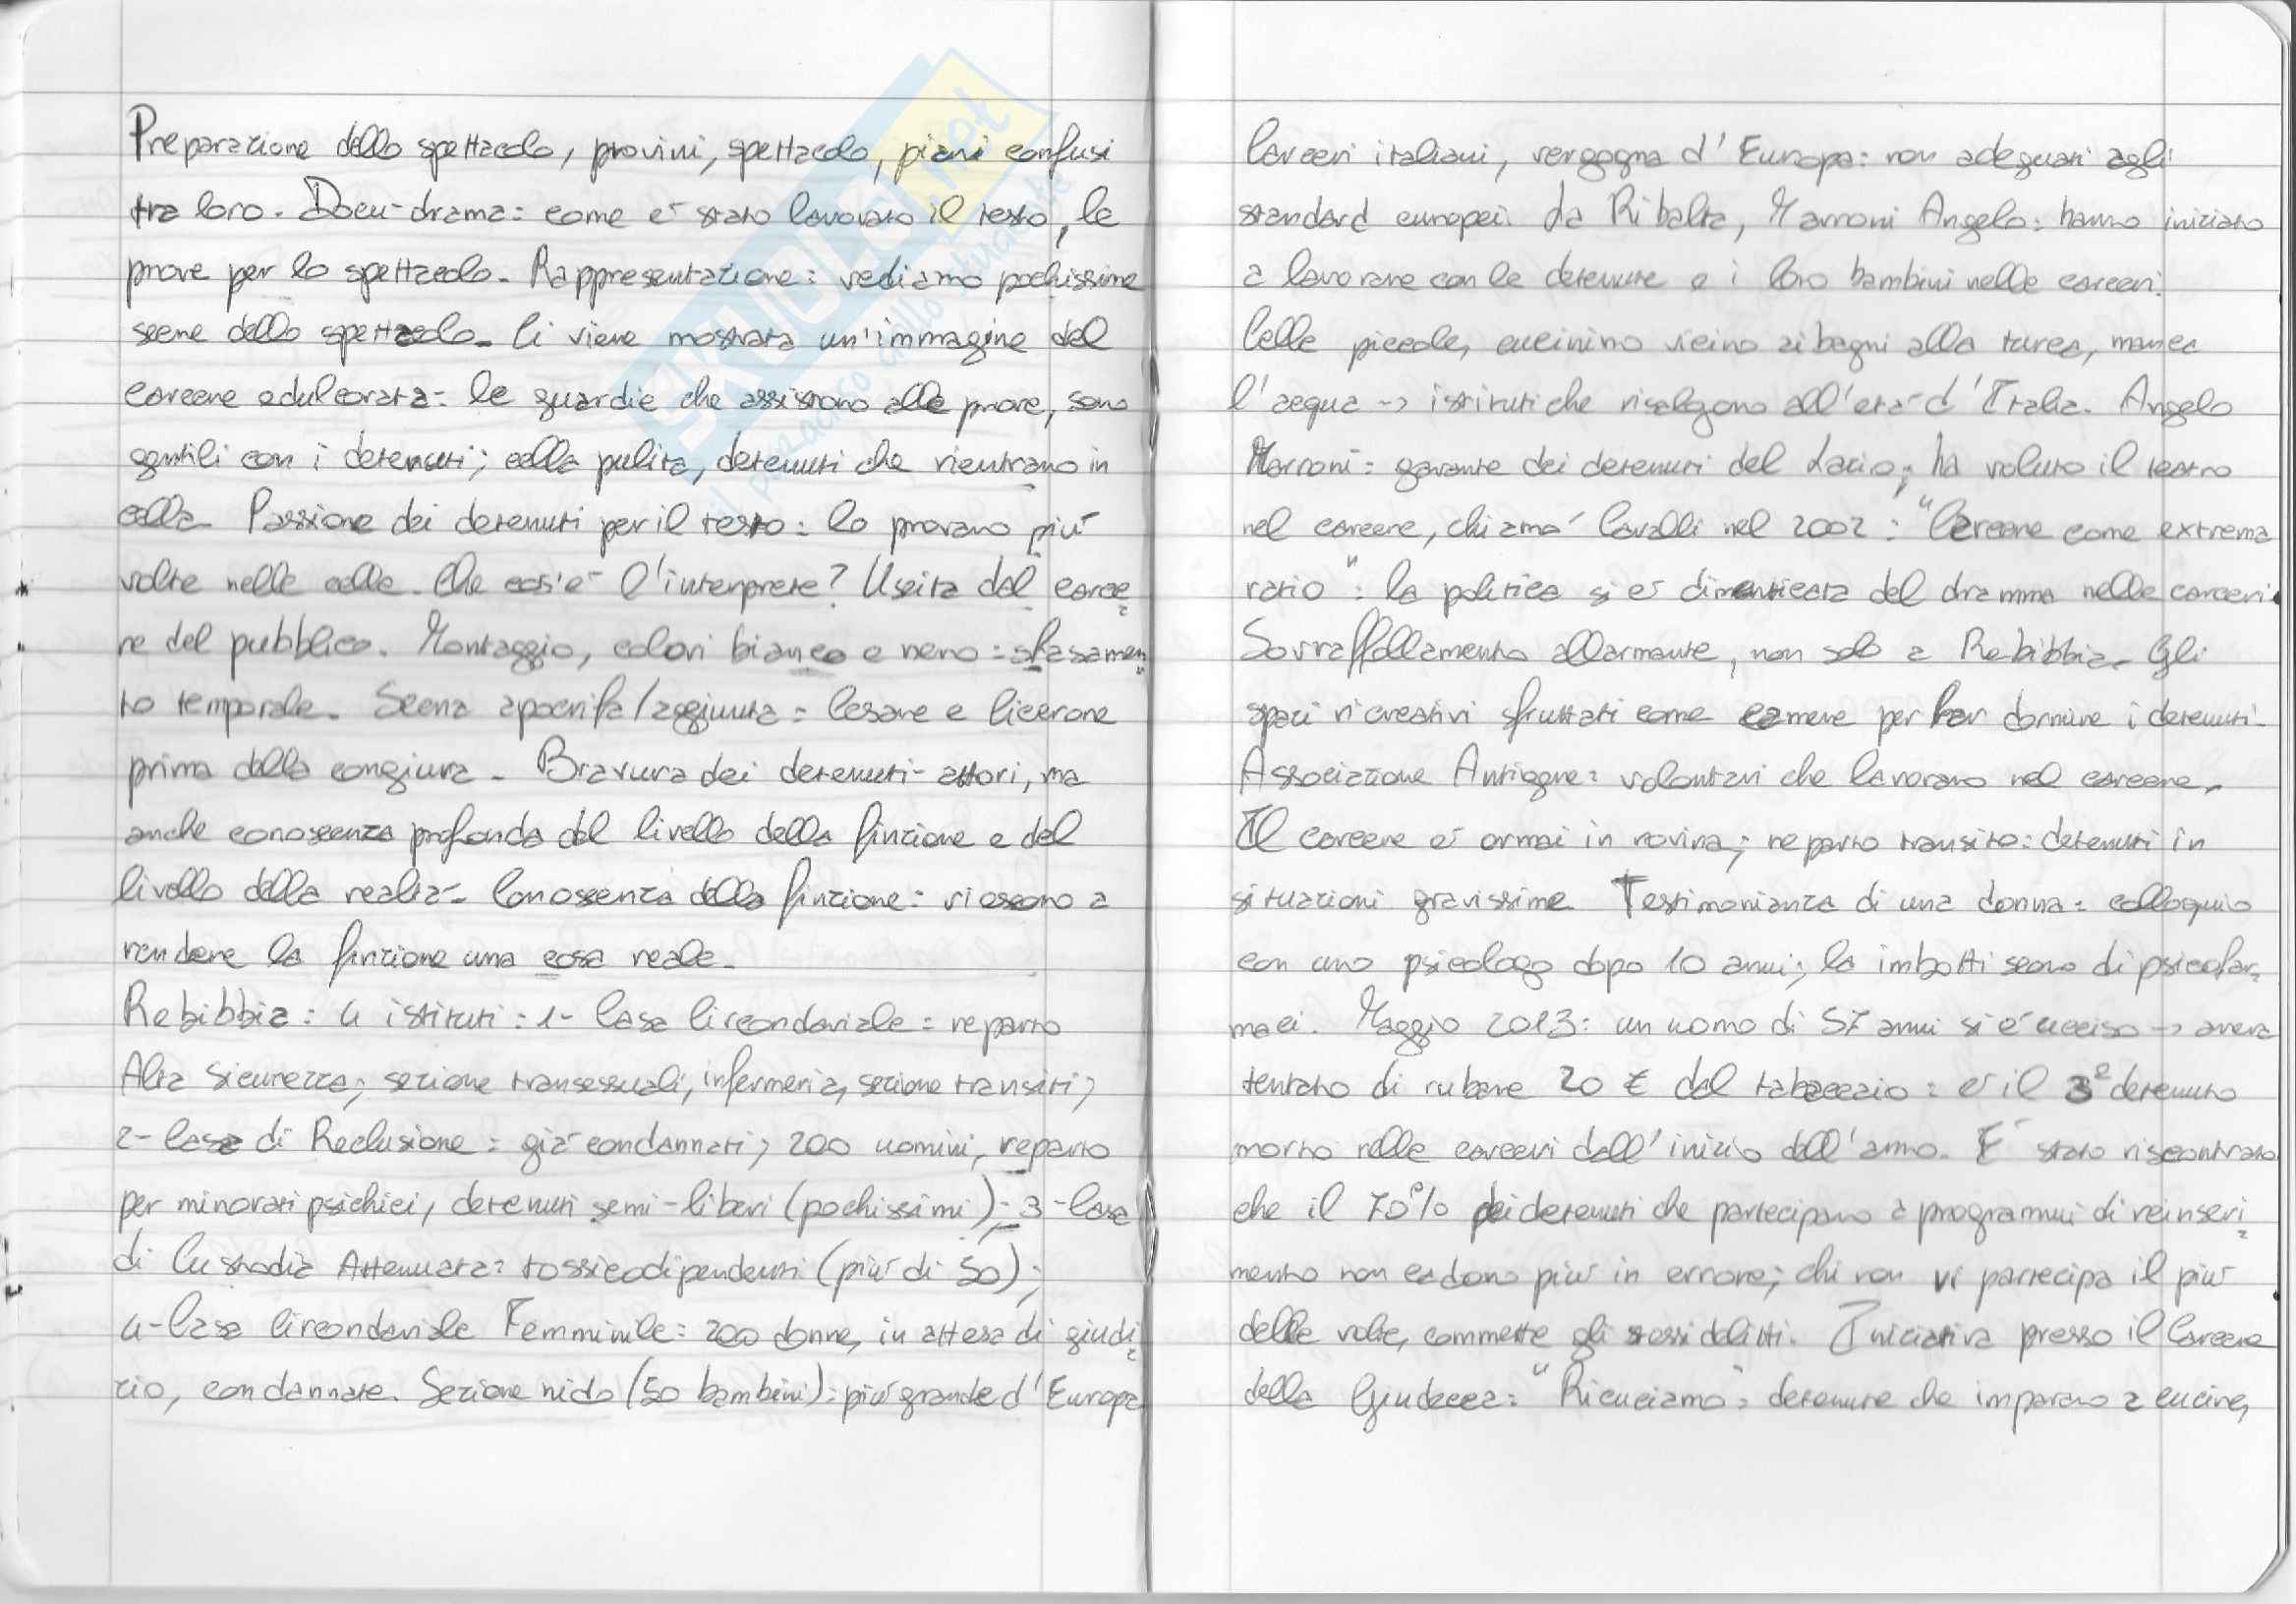 Preparazione dello spettacolo, provini, spettacolo, piani confusi
tra loro. Docu-drama: come è stato lavorato il testo, le
prove per lo spettacolo. Rappresentazione: vediamo pochissime
scene dello spettacolo. Ci viene mostrata un'immagine del
carcere edulcorata: le guardie che assistono alle prove, sono
gentili con i detenuti; cella pulita, detenuti che rientrano in
cella. Passione dei detenuti per il testo: lo provano più
volte nelle celle. Che cos'è l'interprete? Uscita dal carce
re del pubblico. Montaggio, colori bianco e nero: sfasamen
to temporale. Scena apocrifa/aggiunta: Cesare e Cicerone
prima della congiura. Bravura dei detenuti-attori, ma
anche conoscenza profonda del livello della finzione e del
livello della realtà. Conoscenza della finzione: riescono a
rendere la finzione una cosa reale.
Rebibbia: 4 istituti: 1- Casa Circondariale: reparto
Alta Sicurezza; sezione transessuali, infermeria, sezione transiti;
2- Casa di Reclusione: già condannati; 200 uomini, reparto
per minorati psichici, detenuti semi-liberi (pochissimi); 3-Casa
di Custodia Attenuata: tossicodipendenti (più di 50);
4-Casa Circondariale Femminile: 200 donne, in attesa di giudi
zio, condannate. Sezione nido (50 bambini): più grande d'Europa
Carceri italiani, vergogna d'Europa: non adeguati agli
standard europei. La Ribalta, Marroni Angelo: hanno iniziato
a lavorare con le detenute e i loro bambini nelle carceri.
Celle piccole, cucinino vicino ai bagni alla turca, manca
l'acqua -> istituti che risalgono all'età d'Italia. Angelo
Marroni: garante dei detenuti del Lazio; ha voluto il teatro
nel carcere, chiamò Cavalli nel 2002: "Carcere come extrema
ratio": la politica si è dimenticata del dramma nelle carceri.
Sovraffollamento allarmante, non solo a Rebibbia. Gli
spazi ricreativi sfruttati come camere per far dormire i detenuti.
Associazione Antigone: volontari che lavorano nel carcere.
Il carcere è ormai in rovina; reparto transito: detenuti in
situazioni gravissime. Testimonianza di una donna: colloquio
con uno psicologo dopo 10 anni; la imbottiscono di psicofar
maci. Maggio 2013: un uomo di 57 anni si è ucciso -> aveva
tentato di rubare 20 € dal tabaccaio: è il 3° detenuto
morto nelle carceri dall'inizio dell'anno. E' stato riscontrato
che il 70% dei detenuti che partecipano a programmi di reinseri
mento non cadono più in errore; chi non vi partecipa il più
delle volte, commette gli stessi delitti. Iniziativa presso il Carcere
della Giudecca: "Ricuciamo": detenute che imparano a cucire,
SKUOLA.net